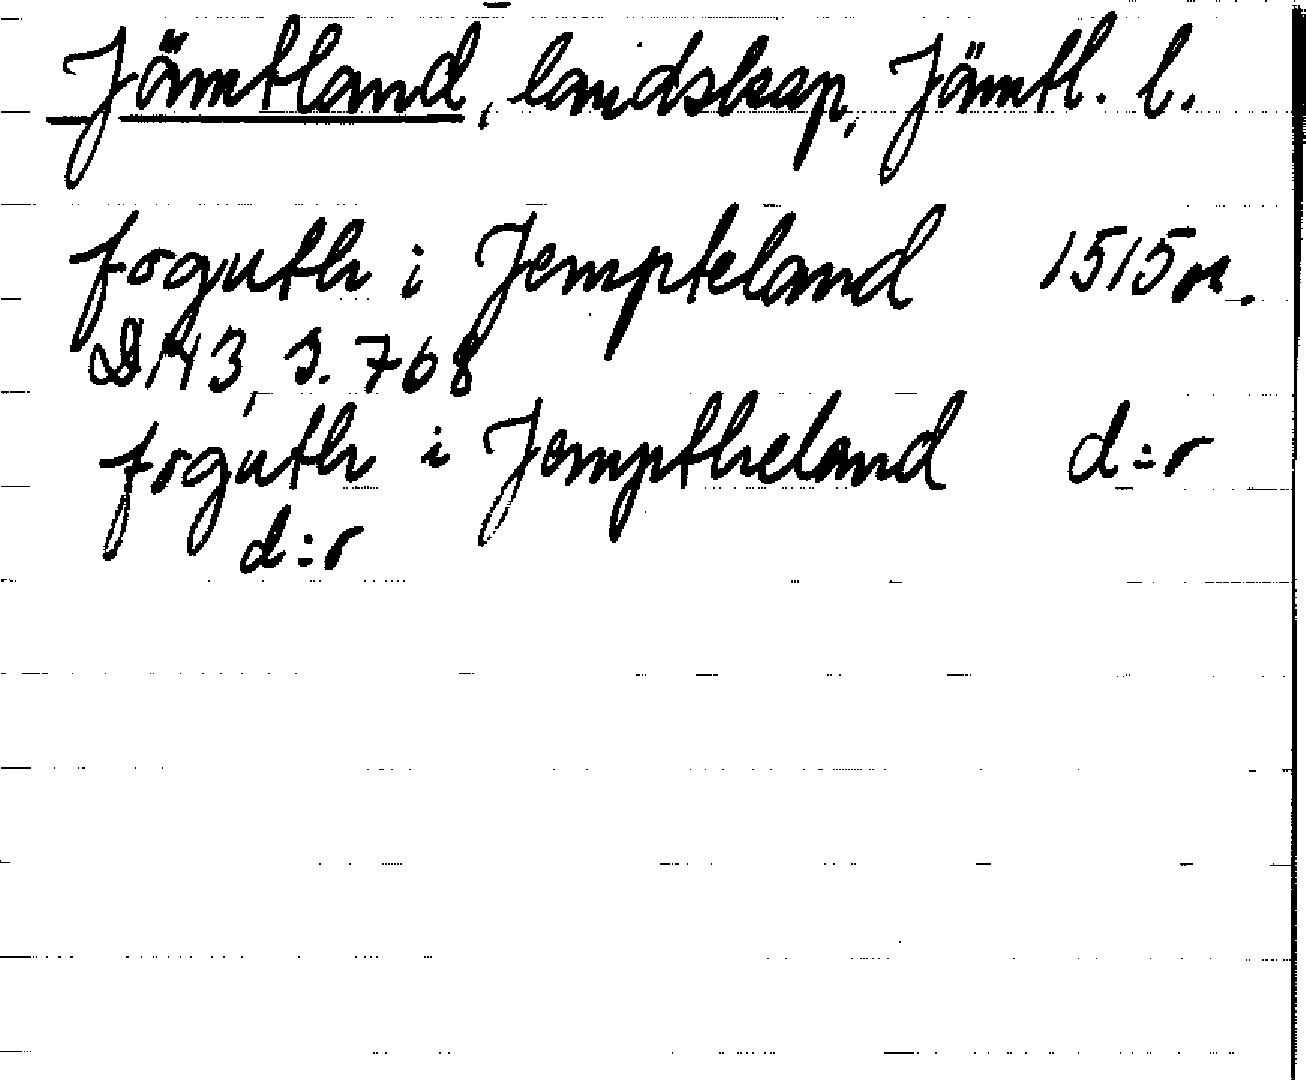 Jämtland, landskap, Jämtl. l.
foguth i Jempteland 1515 or.
D 143, S. 768
foguth i Jemptheland d:o
d:o